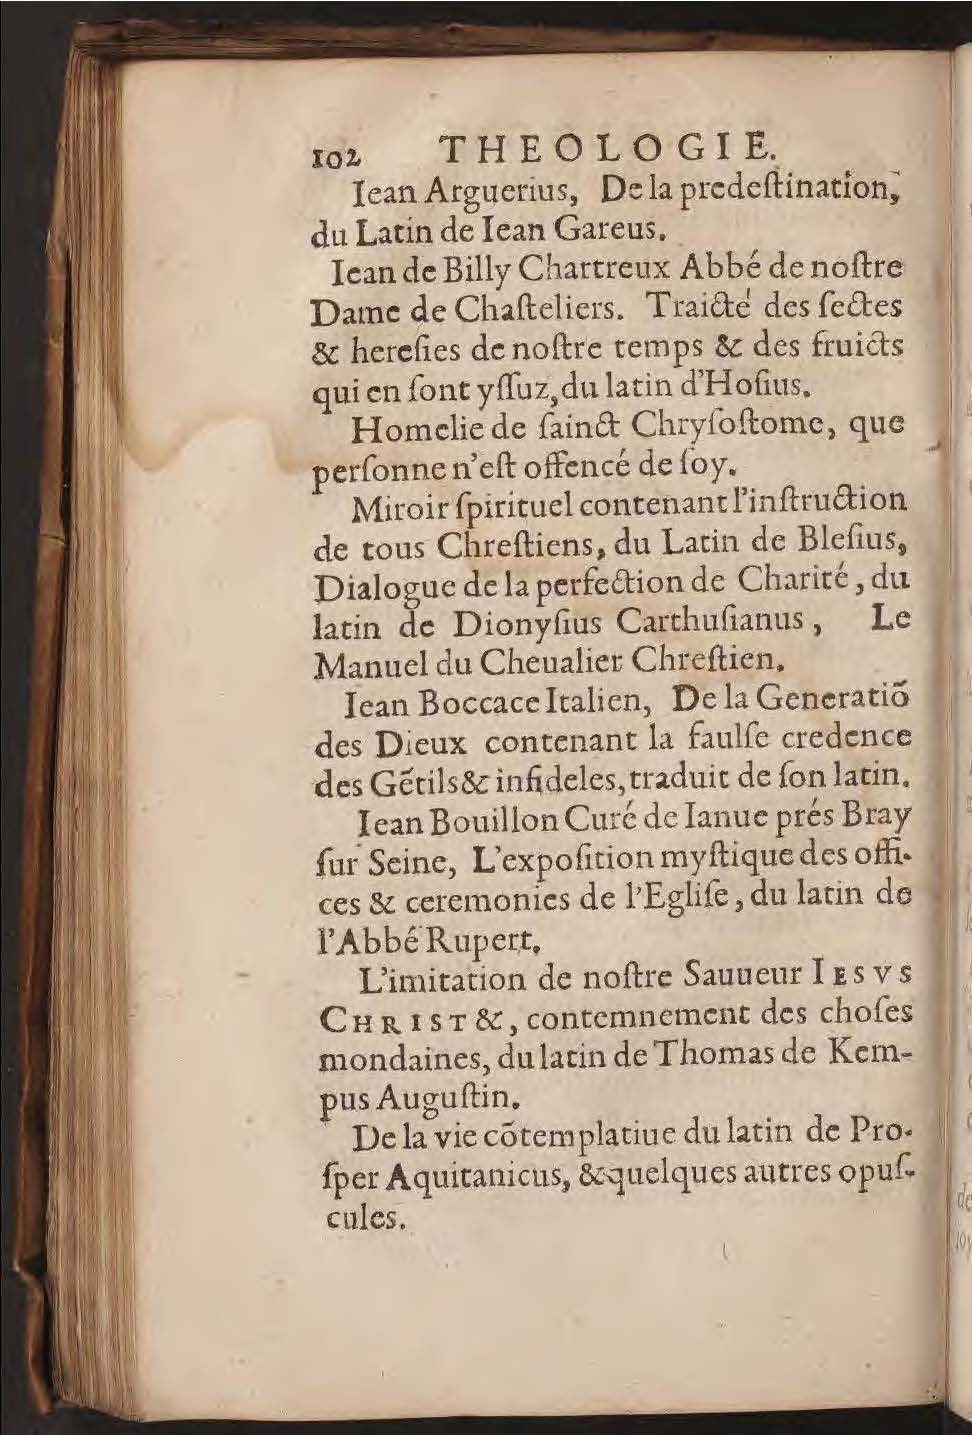 102 THEOLOGIE.
Iean Arguerius, De la predeſtination,
du Latin de Iean Gareus.
Iean de Billy Chartreux Abbé de noſtre
Dame de Chaſteliers. Traicté des ſectes
& hereſies de noſtre temps & des fruicts
qui en ſont yſſuz, du latin d'Hoſius.
Homelie de ſainct Chryſoſtome, que
perſonne n'eſt offencé de ſoy.
Miroir ſpirituel contenant l'inſtruction
de tous Chreſtiens, du Latin de Bleſius,
Dialogue de la perfection de Charité, du
latin de Dionyſius Carthuſianus, Le
Manuel du Cheualier Chreſtien.
Iean Boccace Italien, De la Generatiõ
des Dieux contenant la faulſe credence
des Gẽtils & infideles, traduit de ſon latin.
Iean Bouillon Curé de Ianue prés Bray
ſur Seine, L'expoſition myſtique des offi-
ces & ceremonies de l'Egliſe, du latin de
l'Abbé Rupert.
L'imitation de noſtre Sauueur IESVS
CHRIST &, contemnement des choſes
mondaines, du latin de Thomas de Kem-
pus Auguſtin.
De la vie cõtemplatiue du latin de Pro-
ſper Aquitanicus, & quelques autres opuſ-
cules.